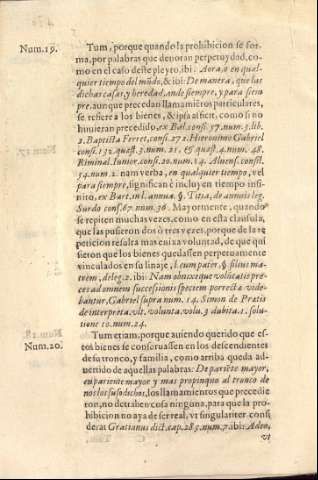 Num.19. Tum, porque quando la prohibicion se for-
ma, por palabras que denotan perpetuydad, co-
mo en el caso deste pleyto, ibi: Aora, o en qual-
quier tiempo del mũdo, & ibi: De manera, que las
dichas casas, y heredad, ande siempre, y para siem
pre, aunque precedan llamamiẽtos particulares,
se refiere a los bienes, & ipsa afficit, como si no
huuieran precedido, ex Bal. cons. 57. num. 5. lib.
2. Baptista Ferret. cons. 272. Hieronimo Gabriel
cons. 132. quæst. 3. num. 21. & quæst. 4. num. 48.
Riminal. Iunior. cons. 20. num. 14. Aluens. consil.
54. num. 2. nam verba, en qualquier tiempo, vel
para siempre, significan è incluyen tiempo infi-
nito, ex Bart. in l. annua. §. Titia, de annuis leg.
Surdo cons. 67. num. 36. Mayormente, quando
se repiten muchas vezes, como en esta clausula,
que las pusieron dos ò tres vezes, porque de la re
peticion resulta mas enixa voluntad, de que qui
sieron que los bienes quedassen perpetuamente
vinculados en su linaje, l. cum pater. §. filius ma-
trem, de leg. 2. ibi: Nam obnixæque volitatis pre-
ces ad omnem successionis speciem porrectæ vide-
bantur, Gabriel supra num. 14. Simon de Pratis
de interpreta. vlt. volunta. volu. 3 dubita. 1. solu-
tione 10. num. 24.
Num.20. Tum etiam, porque auiendo querido que es-
tos bienes se conseruassen en los descendientes
de su tronco, y familia, como arriba queda ad-
uertido de aquellas palabras: De pariẽte mayor,
en pariente mayor y mas propinquo al tronco de
nos los susodichos, los llamamientos que precedie
ron, no detrahen cosa ninguna, para que la pro-
hibicion no aya de ser real, vt singulariter consi
derat Gratianus dict. cap. 285. num. 7. ibi: Adeo,
vt